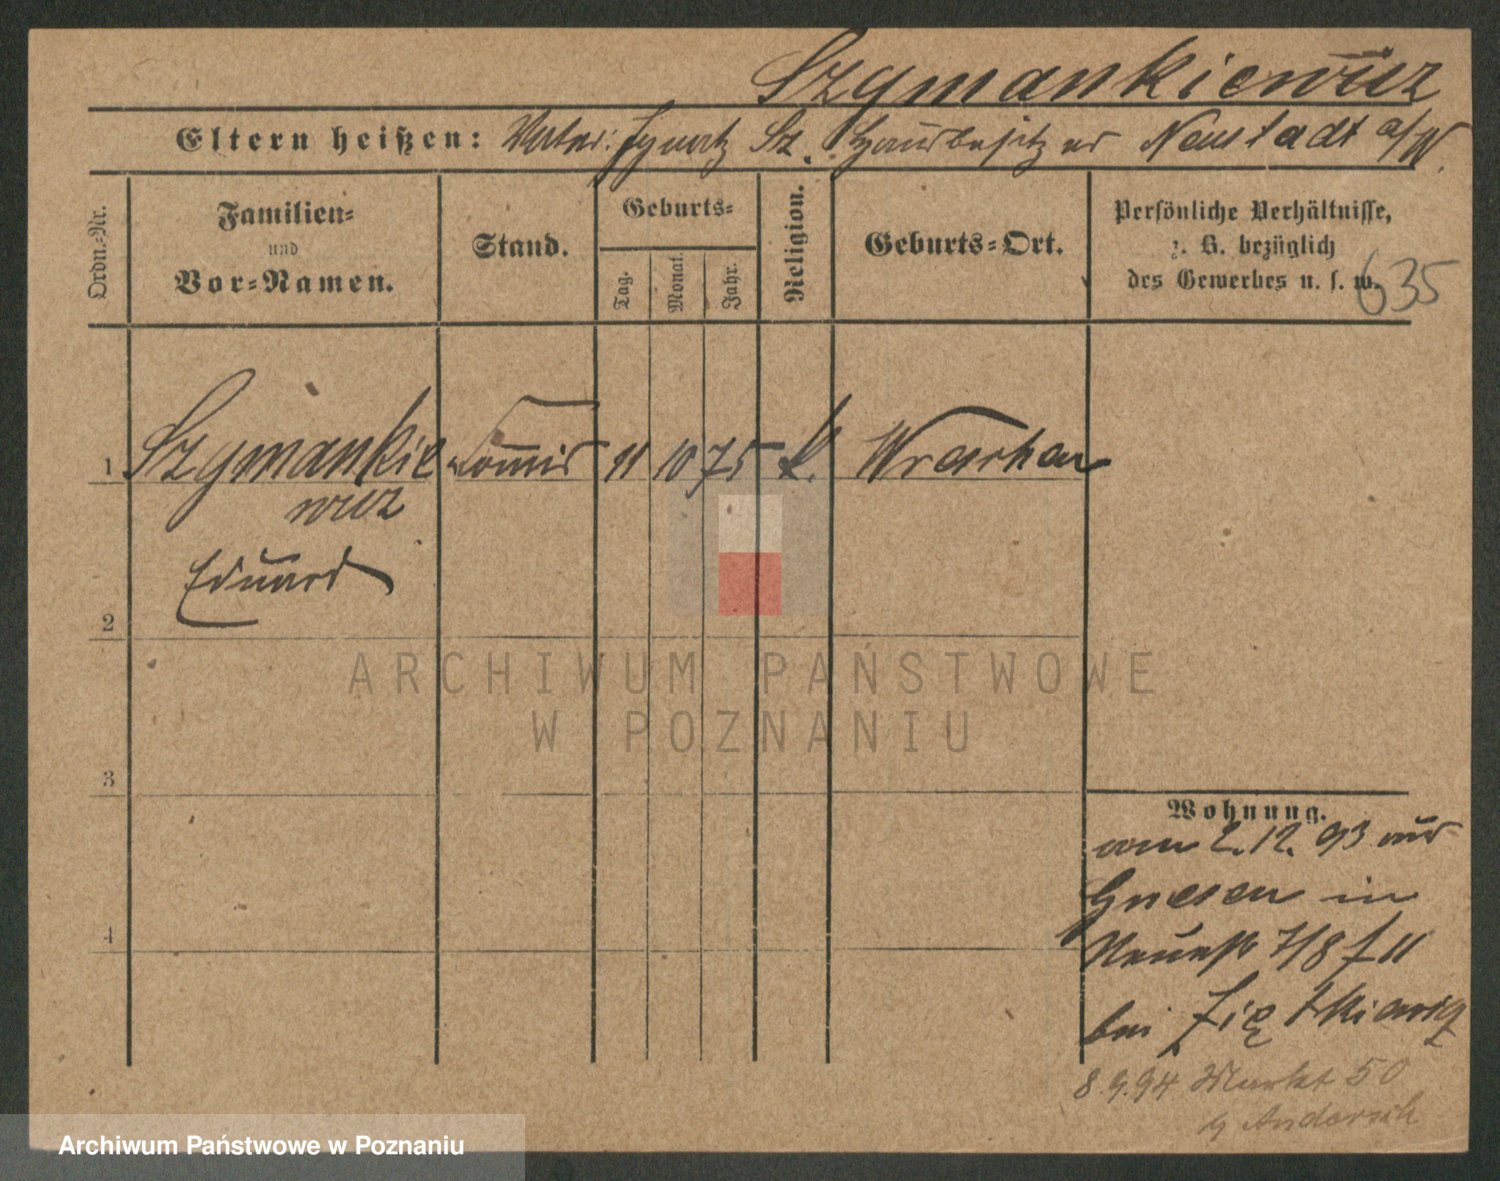 Szymankiewicz
Eltern heißen: Vater: Ignatz Sz. Hausbesitzer Neustadt a/W.
Ordn.-Nr.
Familien-
und
Vor-Namen.
Stand.
Geburts-
Tag.
Monat.
Jahr.
Religion.
Geburts-Ort.
Persönliche Verhältnisse,
z. B. bezüglich
des Gewerbes u. s. w.
635
1 Szymankie Commis 11 10 75 k. Wreschen
wicz
Eduard
2
3
4
Wohnung.
vom 2.12.93 aus
Gnesen in
Neuestr 7/8 f 11
bei
8.9.94 Markt 50
ARCHIWUM PAŃSTWOWE
W POZNANIU
Archiwum Państwowe w Poznaniu